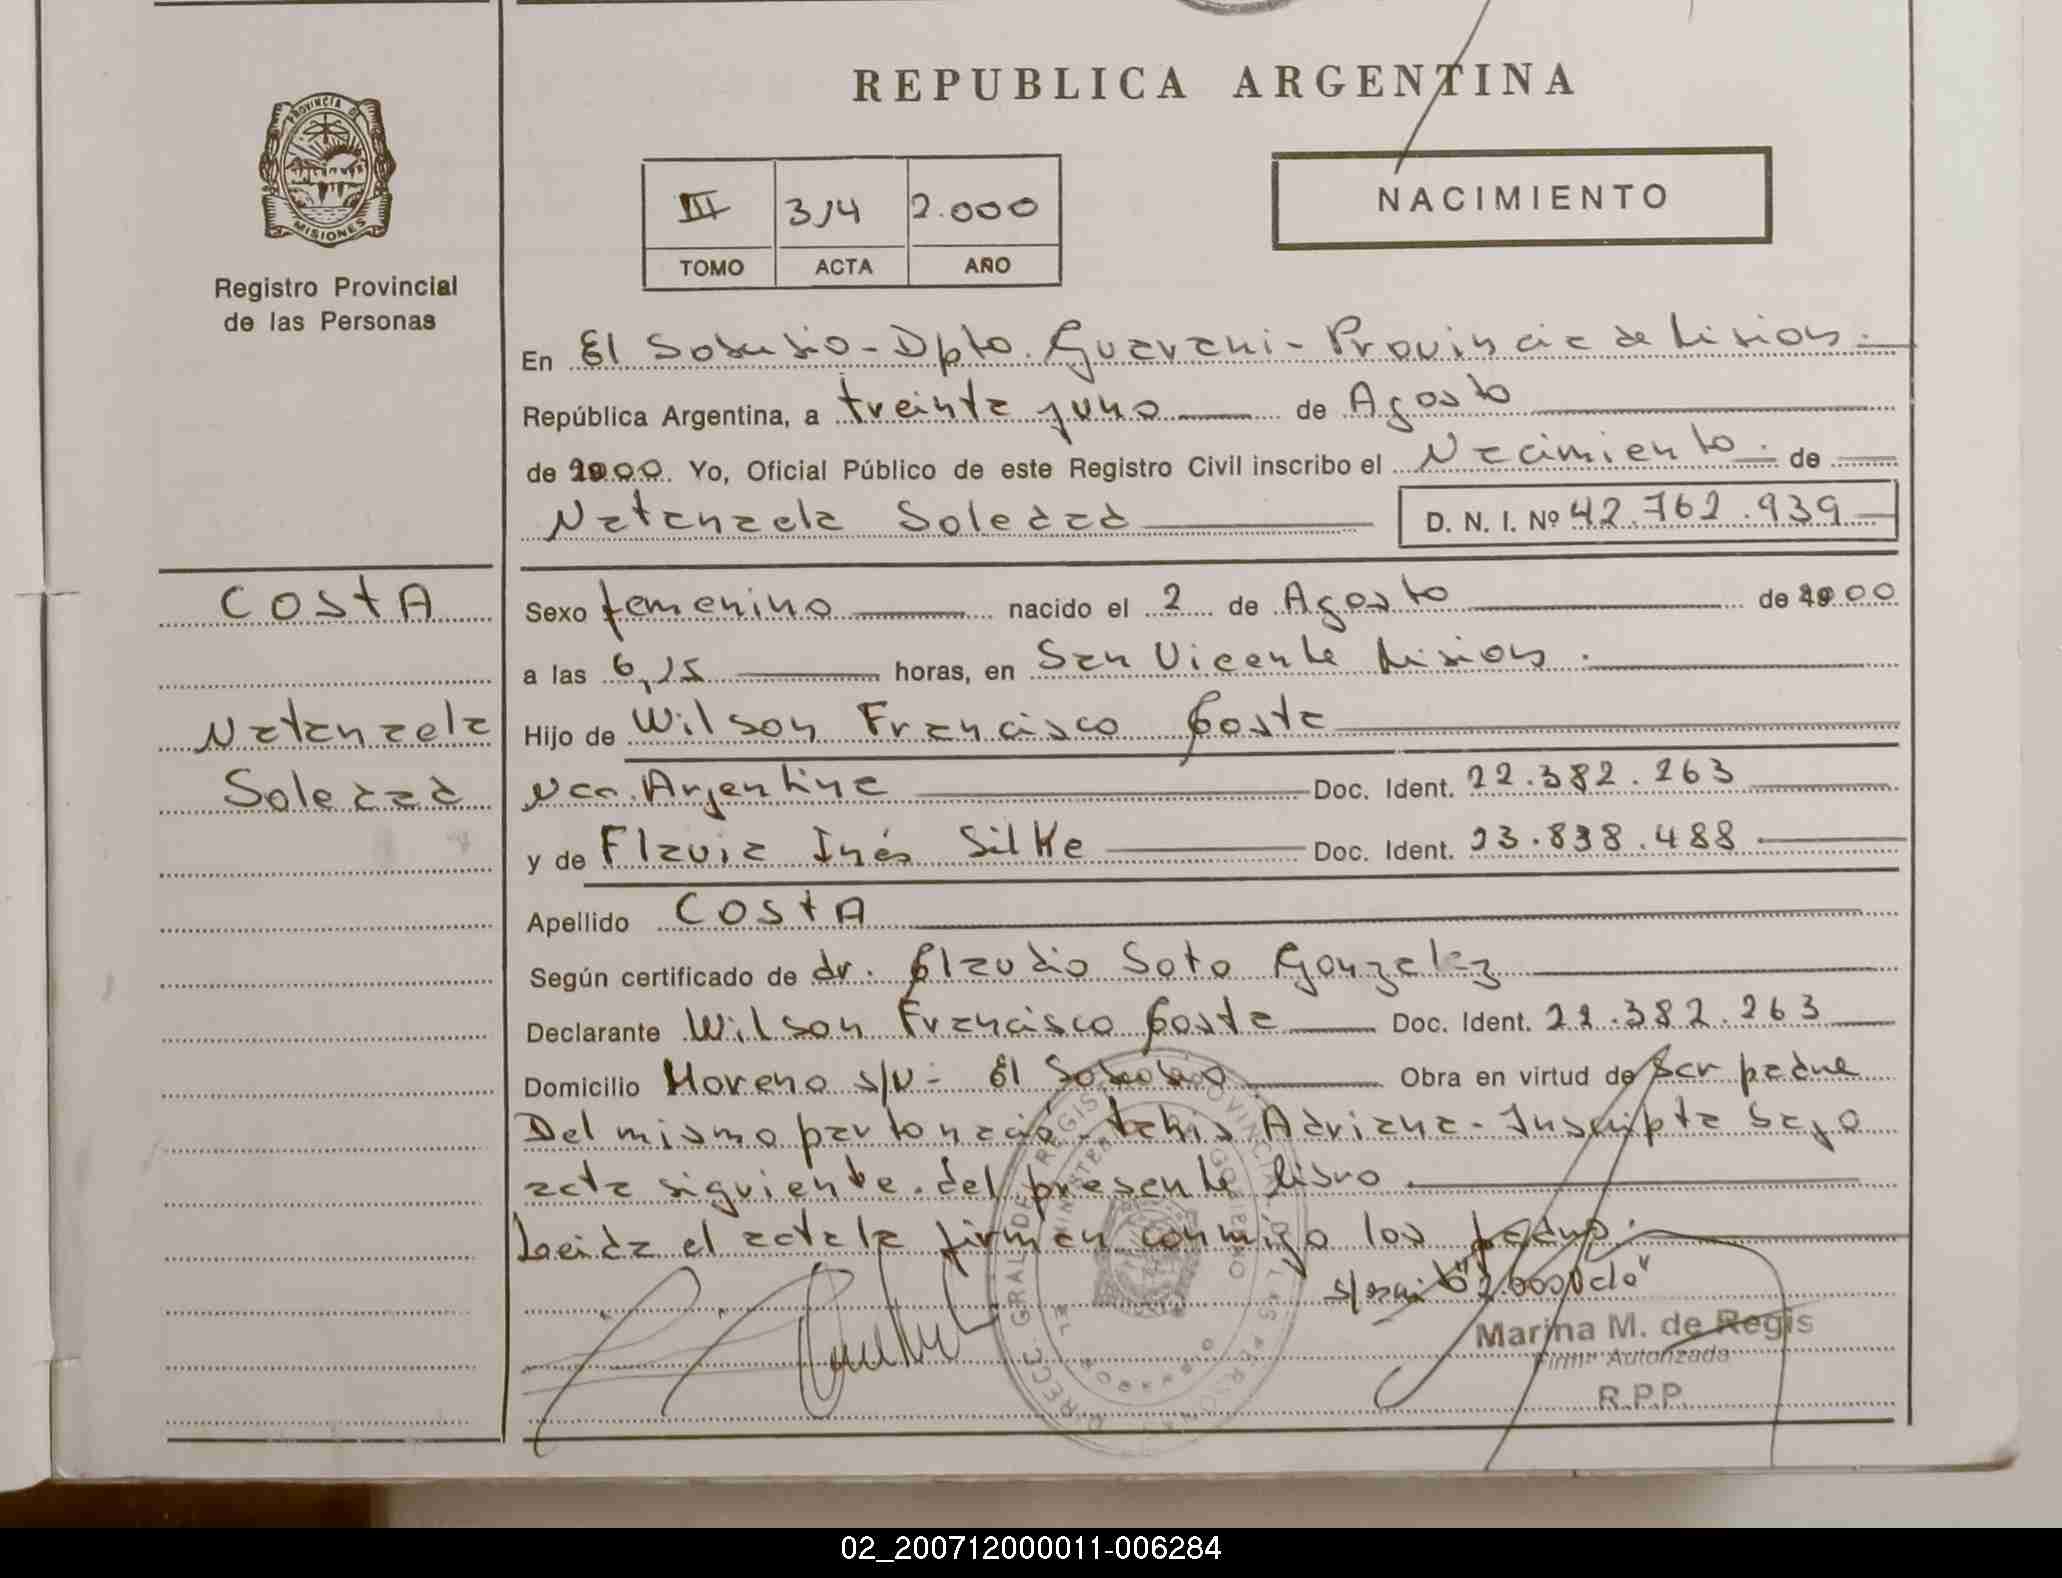 REPUBLICA ARGENTINA
PROVINCIA DE MISIONES
Registro Provincial
de las Personas
III 314 2.000
TOMO ACTA AÑO
NACIMIENTO
En El Soberbio - Dpto. Guarani - Provincia de Misiones.
República Argentina, a treinta y uno de Agosto
de 2000. Yo, Oficial Público de este Registro Civil inscribo el Nacimiento. de
Natanaela Soledad D. N. I. Nº 42.762.939
COSTA
Natanaela
Soledad
Sexo femenino nacido el 2 de Agosto de 2000
a las 6,15 horas, en San Vicente Misiones.
Hijo de Wilson Francisco Costa
Nac. Argentina Doc. Ident. 22.382.263
y de Flavia Inés Silke Doc. Ident. 23.838.488
Apellido COSTA
Según certificado de dr. Claudio Soto Gonzalez
Declarante Wilson Francisco Costa Doc. Ident. 22.382.263
Domicilio Moreno s/N - El Soberbio Obra en virtud de ser padre
Del mismo parto nació Adriana - Inscripta bajo
acta siguiente del presente libro
Leida el acta la firman conmigo los padres.
Marina M. de Regis
Firma Autorizada
R.P.P.
02_200712000011-006284